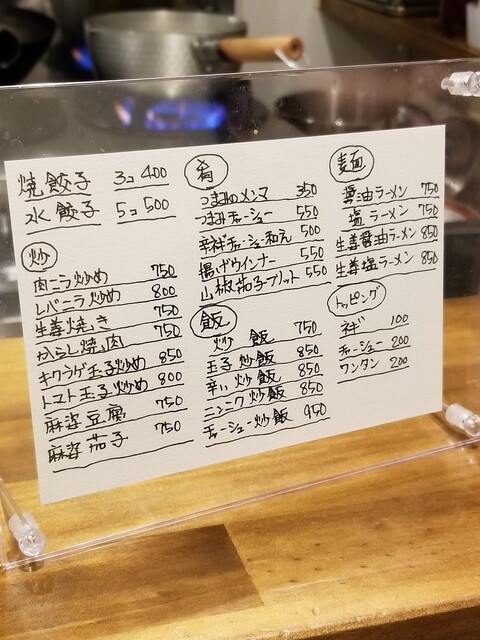 焼餃子 3コ 400
水餃子 5コ 500
炒
肉ニラ炒め 750
レバニラ炒め 800
生姜焼き 750
からし焼肉 750
キクラゲ玉子炒め 850
トマト玉子炒め 800
麻婆豆腐 750
麻婆茄子 750
肴
つまみのメンマ 350
つまみチャーシュー 550
辛ネギチャーシュー和え 500
揚げウインナー 550
山椒茄子フリット 550
飯
炒飯 750
玉子炒飯 850
辛い炒飯 850
ニンニク炒飯 850
チャーシュー炒飯 950
麺
醤油ラーメン 750
塩ラーメン 750
生姜醤油ラーメン 850
生姜塩ラーメン 850
トッピング
ネギ 100
チャーシュー 200
ワンタン 200